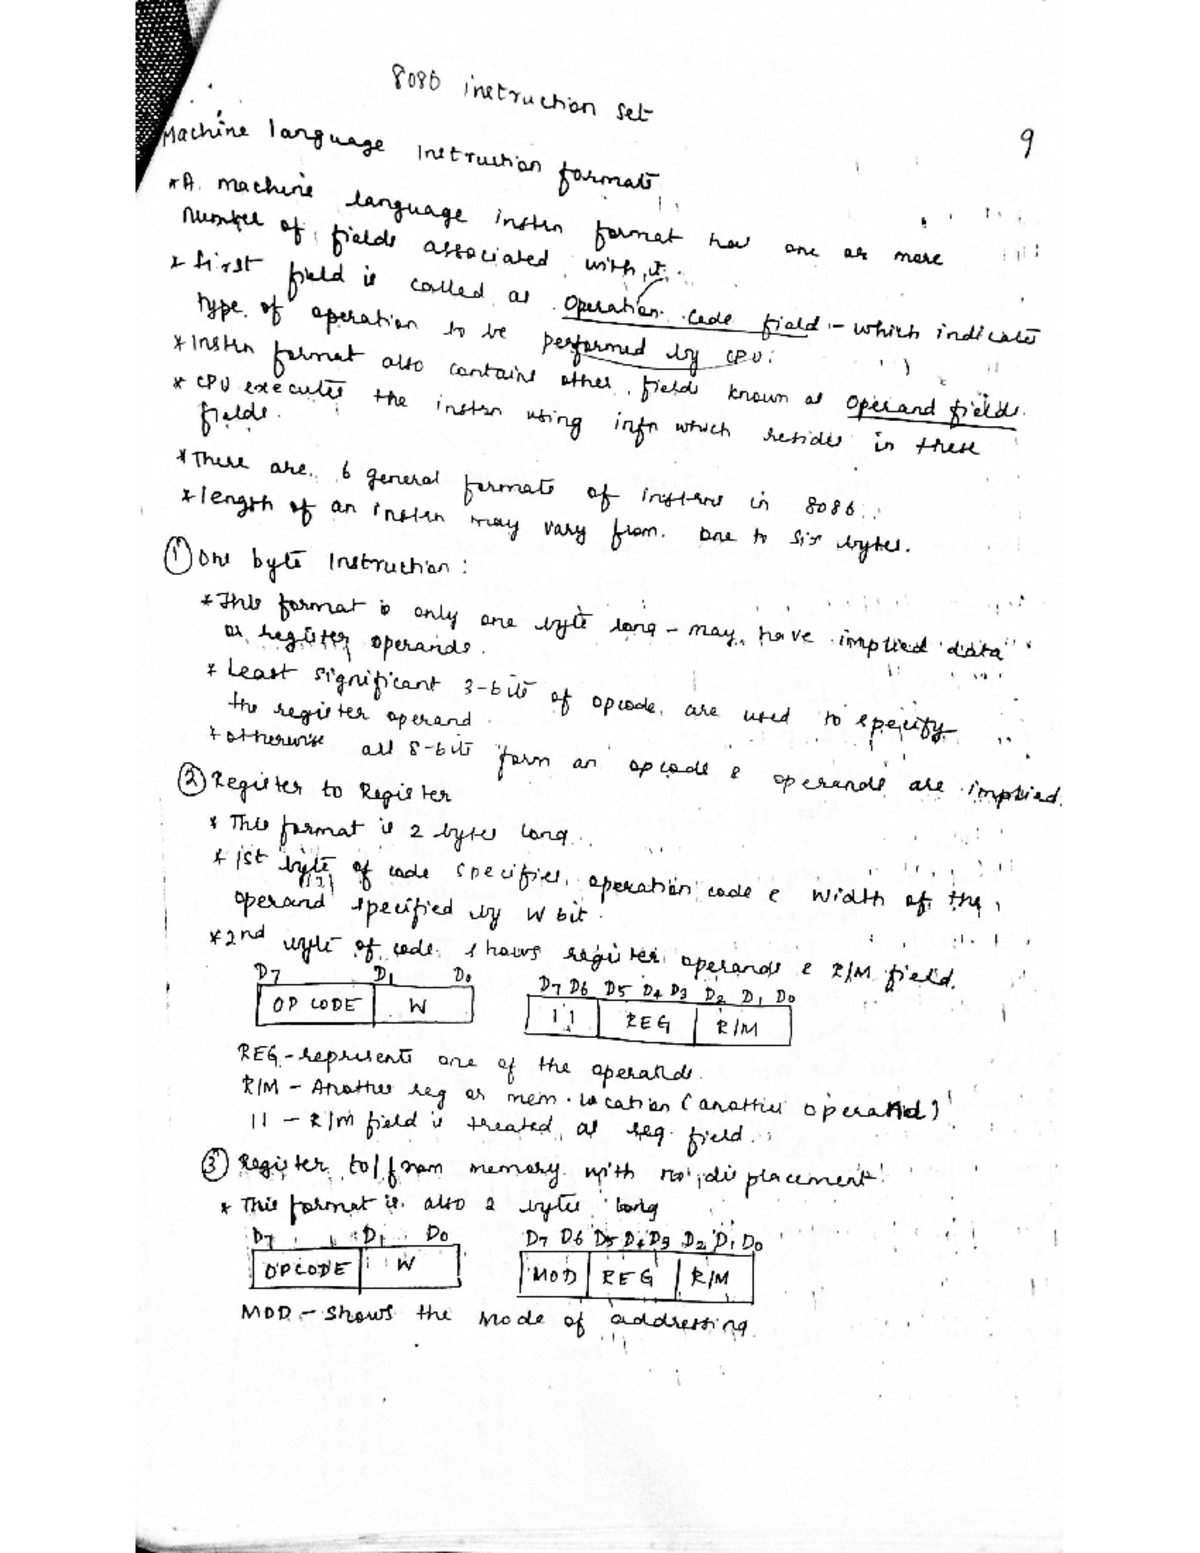 8086 instruction set
9
Machine language Instruction formats
* A machine language instrn format has one or more
number of fields associated with it.
* First field is called as operation code field - which indicates
type of operation to be performed by CPU.
* Instrn format also contains other fields known as operand fields.
* CPU executes the instrn using infn which resides in these
fields.
* There are 6 general formats of instrns in 8086.
* length of an instrn may vary from one to six bytes.
① One byte Instruction :
* This format is only one byte long - may have implied data
or register operands.
* Least significant 3-bits of opcode are used to specify
the register operand.
* otherwise all 8-bits form an opcode & operands are implied.
② Register to Register
* This format is 2 bytes long.
* 1st byte of code specifies operation code & width of the
operand specified by W bit.
* 2nd byte of code shows register operands & R/M field.
D7 D1 D0 D7 D6 D5 D4 D3 D2 D1 D0
OP CODE W 11 REG R/M
REG - represents one of the operands.
R/M - Another reg or mem. location (another operand)
11 - R/M field is treated as reg. field.
③ Register to/from memory with no displacement
* This format is also 2 bytes long
D7 D1 D0 D7 D6 D5 D4 D3 D2 D1 D0
OPCODE W MOD REG R/M
MOD - Shows the Mode of addressing.